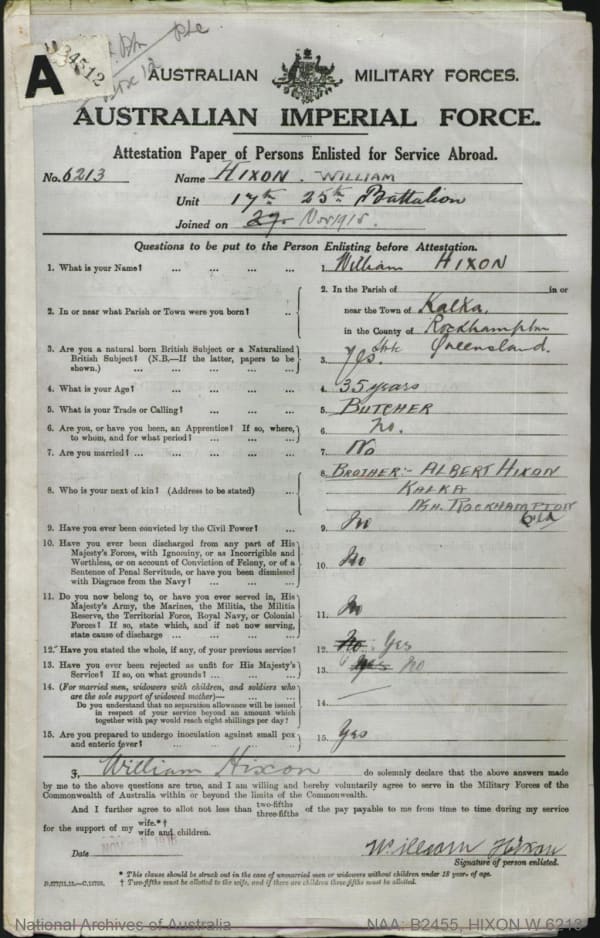 34512
A
AUSTRALIAN MILITARY FORCES.
AUSTRALIAN IMPERIAL FORCE.
Attestation Paper of Persons Enlisted for Service Abroad.
No. 6213 Name HIXON. WILLIAM
Unit 17th 25th Battalion
Joined on Nov 1915.
Questions to be put to the Person Enlisting before Attestation.
1. What is your Name? ... ... ... ... 1. William HIXON
2. In or near what Parish or Town were you born? .. 2. In the Parish of in or
near the Town of Kalka,
in the County of Rockhampton
Queensland.
3. Are you a natural born British Subject or a Naturalized
British Subject? (N.B.—If the latter, papers to be
shown.) ... ... ... ... ... 3. Yes.
4. What is your Age? ... ... ... ... 4. 35 years
5. What is your Trade or Calling? ... ... ... 5. BUTCHER
6. Are you, or have you been, an Apprentice? If so, where,
to whom, and for what period? ... ... ... 6. no.
7. Are you married? ... ... ... ... ... 7. No
8. Who is your next of kin? (Address to be stated) ... 8. BROTHER:- ALBERT HIXON
KALKA
NR. ROCKHAMPTON
Qld
9. Have you ever been convicted by the Civil Power? ... 9. No
10. Have you ever been discharged from any part of His
Majesty's Forces, with Ignominy, or as Incorrigible and
Worthless, or on account of Conviction of Felony, or of a
Sentence of Penal Servitude, or have you been dismissed
with Disgrace from the Navy? ... ... ... 10. No
11. Do you now belong to, or have you ever served in, His
Majesty's Army, the Marines, the Militia, the Militia
Reserve, the Territorial Force, Royal Navy, or Colonial
Forces? If so, state which, and if not now serving,
state cause of discharge ... ... ... ... 11. No
12. Have you stated the whole, if any, of your previous service? 12. No. Yes
13. Have you ever been rejected as unfit for His Majesty's
Service? If so, on what grounds? ... ... ... 13. Yes No
14. (For married men, widowers with children, and soldiers who
are the sole support of widowed mother)—
Do you understand that no separation allowance will be issued
in respect of your service beyond an amount which
together with pay would reach eight shillings per day? 14.
15. Are you prepared to undergo inoculation against small pox
and enteric fever? ... ... ... ... 15. Yes
I, William Hixon do solemnly declare that the above answers made
by me to the above questions are true, and I am willing and hereby voluntarily agree to serve in the Military Forces of the
Commonwealth of Australia within or beyond the limits of the Commonwealth.
And I further agree to allot not less than two-fifths three-fifths of the pay payable to me from time to time during my service
for the support of my wife.*† wife and children.
Date
William Hixon
Signature of person enlisted.
* This clause should be struck out in the case of unmarried men or widowers without children under 18 years of age.
† Two-fifths must be allotted to the wife, and if there are children three-fifths must be allotted.
National Archives of Australia NAA: B2455, HIXON W 6213